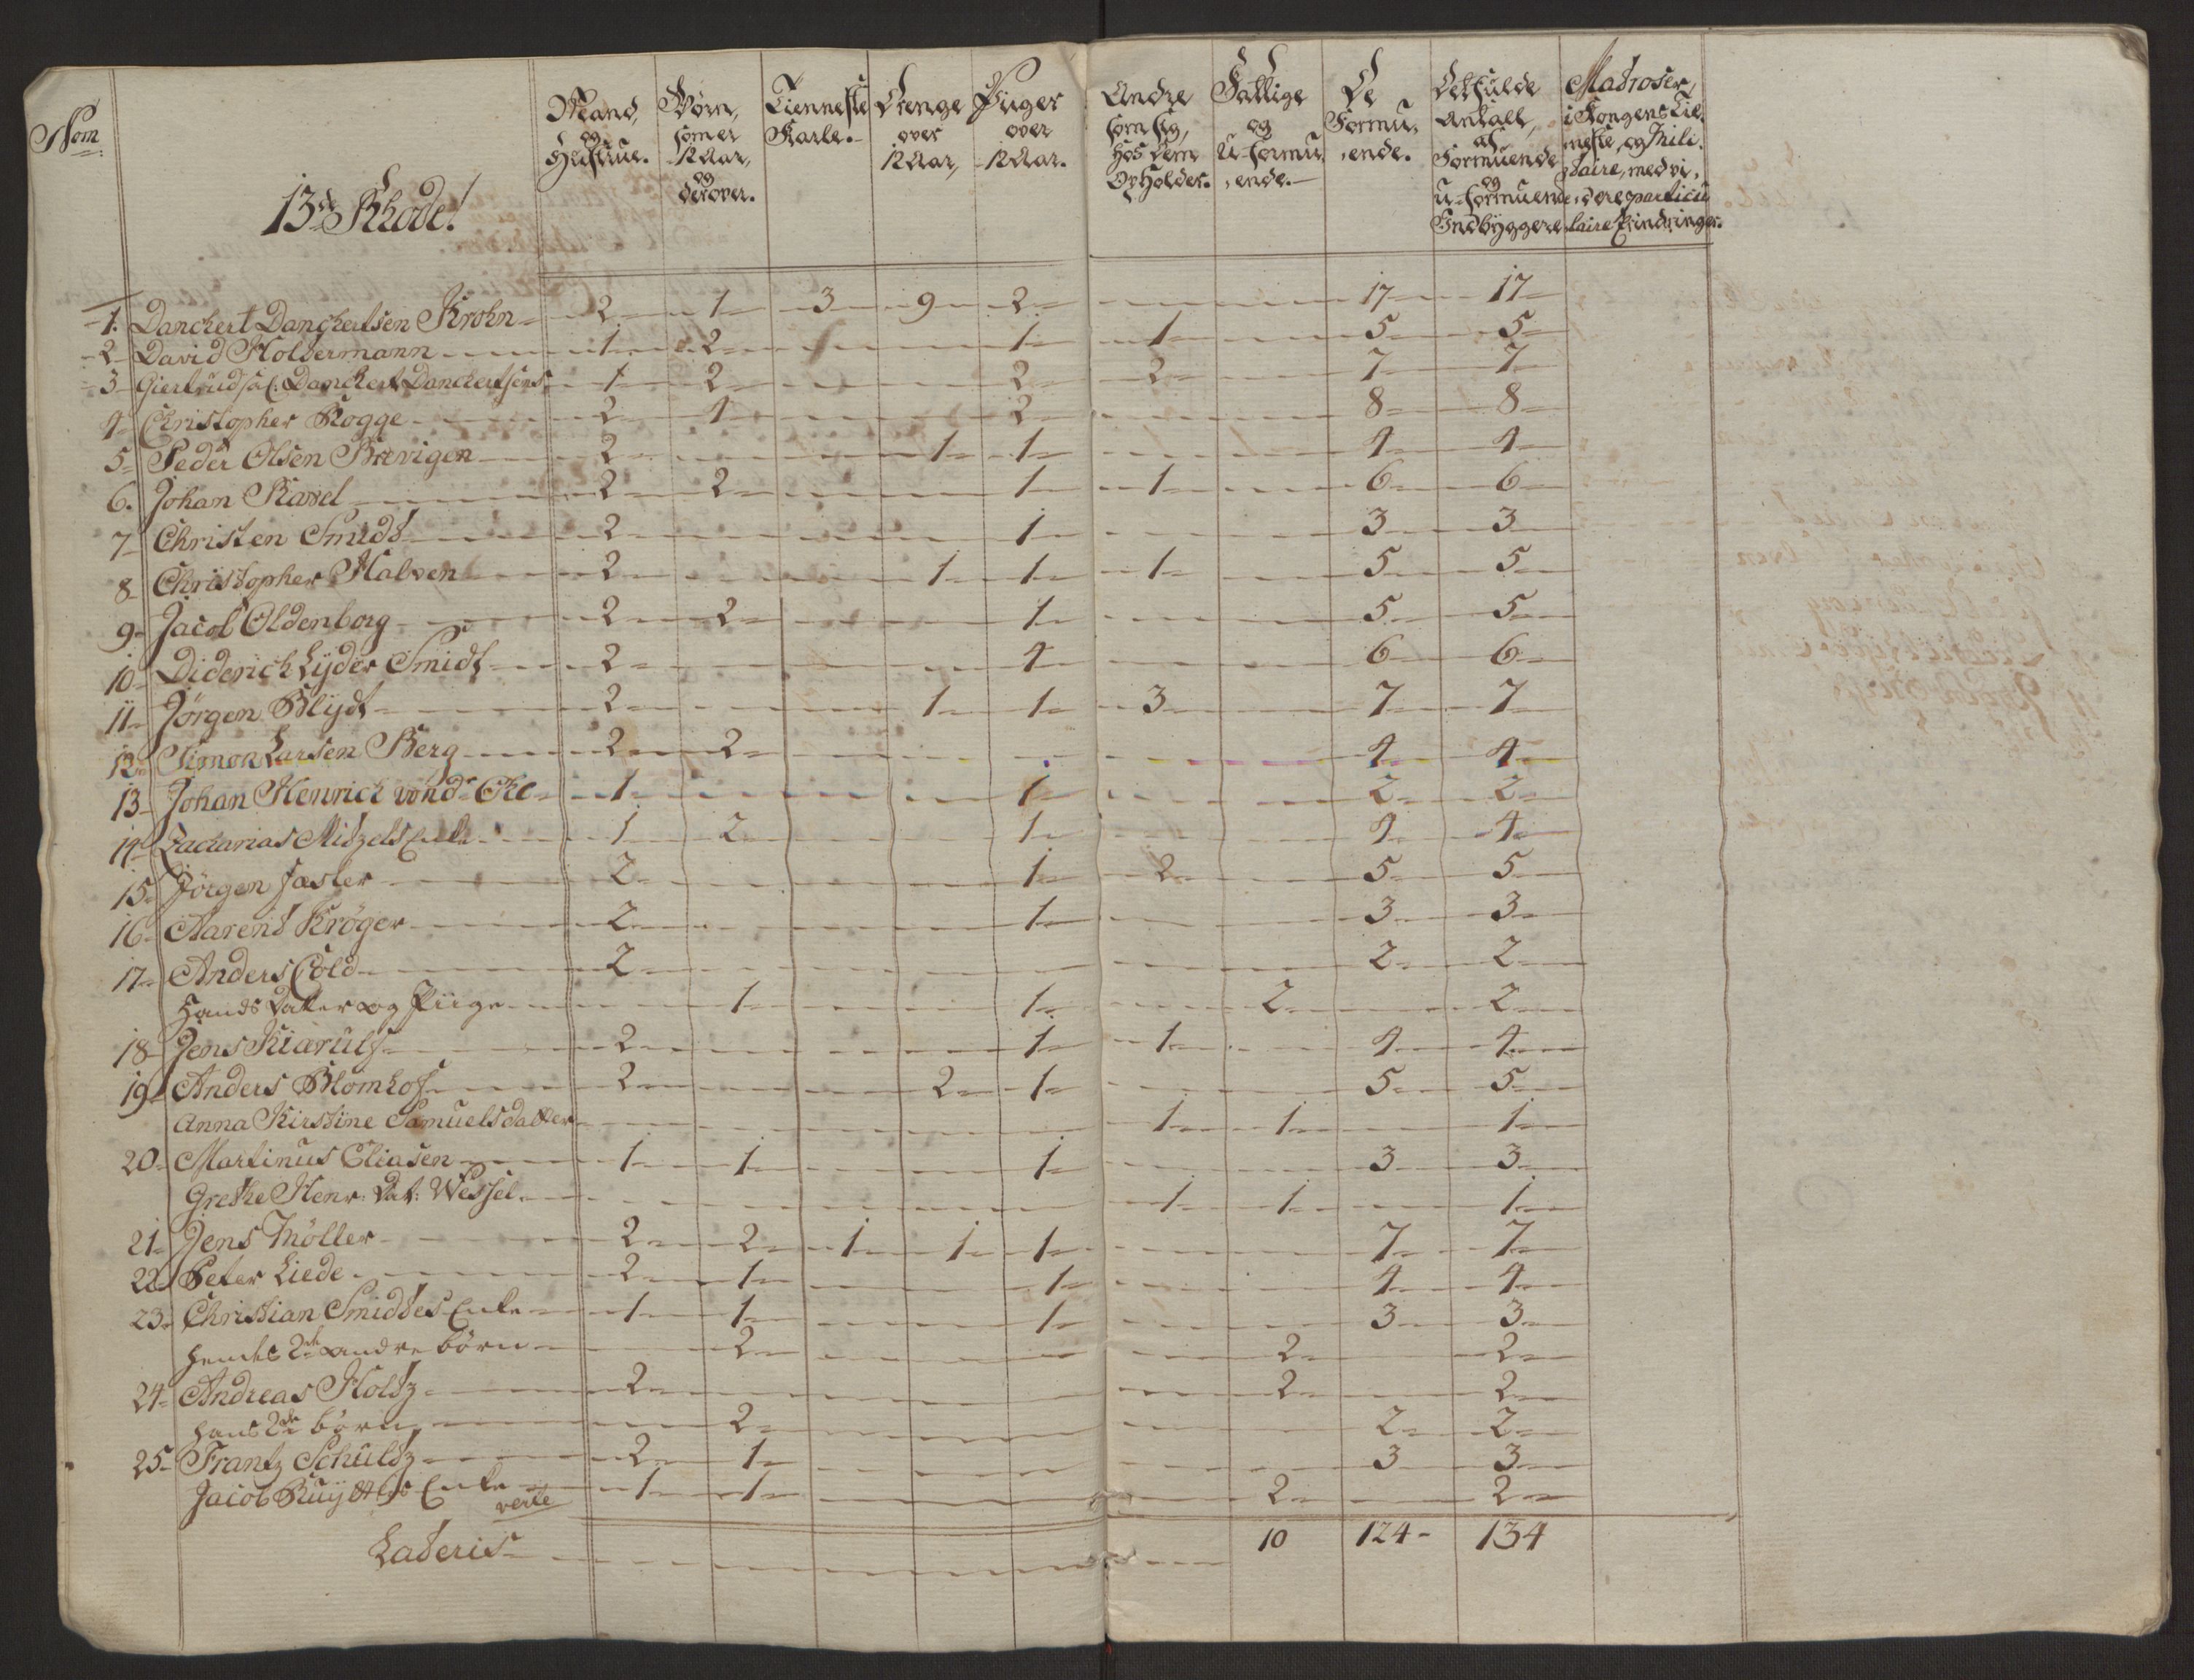 Nom
13de Rhode!
Mand, og Hustrue.
Børn, som er 12 Aar, og derover.
Tienneste Karle.
Drenge over 12 Aar,
Piiger over 12 Aar.
Andre som sig, hos dem Opholder.
Fattige og U-formu, ende.
De Formu, ende.
Det fulde Antall, af Formuende og u-formuende Indbyggere
Matroser, i Kongens Tie, neste, og Mili, taire, med vi, dere particu laire Erindringer.
1. Danckert Danckertsen Krohn 2 1 3 9 2 17 17
2 David Holdermann 1 2 1 1 5 5
3 Giertrud sal: Danckert Danckertsens 1 2 2 2 7 7
4 Christopher Kogge 2 4 2 8 8
5 Peder Olsen Brevigen 2 1 1 4 4
6. Johan Kavel 2 2 1 1 6 6
7 Christen Smidt 2 1 3 3
8 Christopher Halven 2 1 1 1 5 5
9 Jacob Oldenborg 2 2 1 5 5
10 Diderich Lyder Smidt 2 4 6 6
11 Jörgen Blydt 2 1 1 3 7 7
12 Simon Larsen Berg 2 2 4 4
13 Johan Henrich vond Ehe 1 1 2 2
14 Zacharias Mitzels Enke 1 2 1 4 4
15 Jörgen Jæsler 2 1 2 5 5
16 Aarend Kröger 2 1 3 3
17 Anders Cold 2 2 2
Hands Datter og Piige 1 1 2 2
18 Jens Kiærulf 2 1 1 4 4
19 Anders Blomhof 2 2 1 5 5
Anna Kirstine Samuelsdatter 1 1 1
20 Martinus Eliasen 1 1 1 3 3
Grethe Henr: Dat: Wessel 1 1 1
21 Jens Möller 2 2 1 1 1 7 7
22 Peter Liede 2 1 1 4 4
23 Christian Smidtes Enke 1 1 1 3 3
hendes 2de andre börn 2 2 2
24 Andreas Holtz 2 2 2
hans 2de börn 2 2 2
25 Frantz Schultz 2 1 3 3
Jacob Enke 1 1 2 2
verte
Lateris 10 124 134